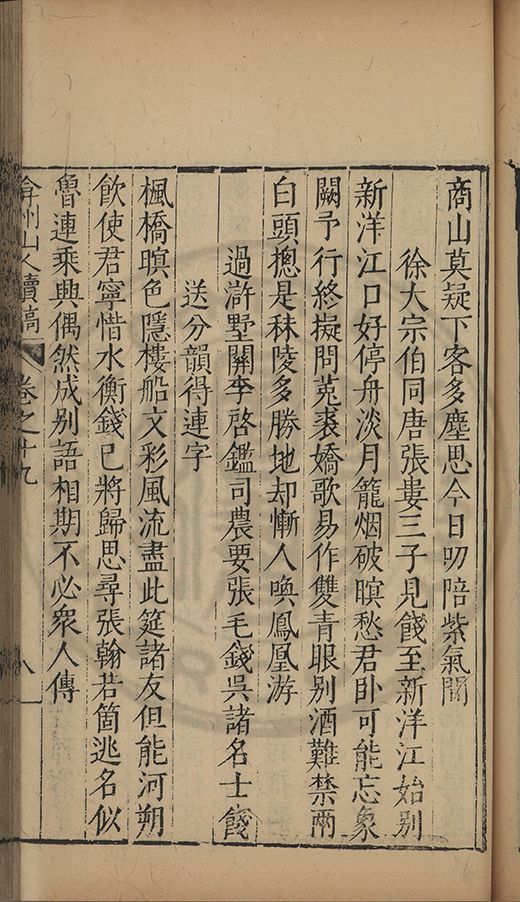 商山莫疑下客多塵思今日叨陪紫氣關
徐大宗伯同唐張婁三子見餞至新洋江始別
新洋江口好停舟淡月籠烟破暝愁君卧可能忘象
闕予行終擬問菟裘嬌歌易作雙青眼別酒難禁兩
白頭摠是秣陵多勝地却慚人喚鳳凰游
過滸墅關李啓鑑司農要張毛錢吳諸名士餞
送分韻得連字
楓橋暝色隱樓船文彩風流盡此筵諸友但能河朔
飲使君寧惜水衡錢已將歸思尋張翰若箇逃名似
魯連乘興偶然成別語相期不必衆人傳
弇州山人續稿 卷之十九 八